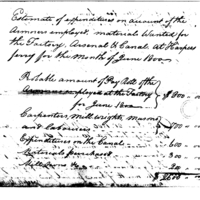 Estimate of expenditures on account of the
Armorer employ'd material Wanted for
the Factory, Arsenal & Canal at Harpers
ferry for the Month of June 1800
Probable amount of Pay Roll of the
Armorers employed at the Factory
for June 1800
Carpenters, Millwrights, Masons
and Labourers
Expenditures on the Canal
Materials purchased